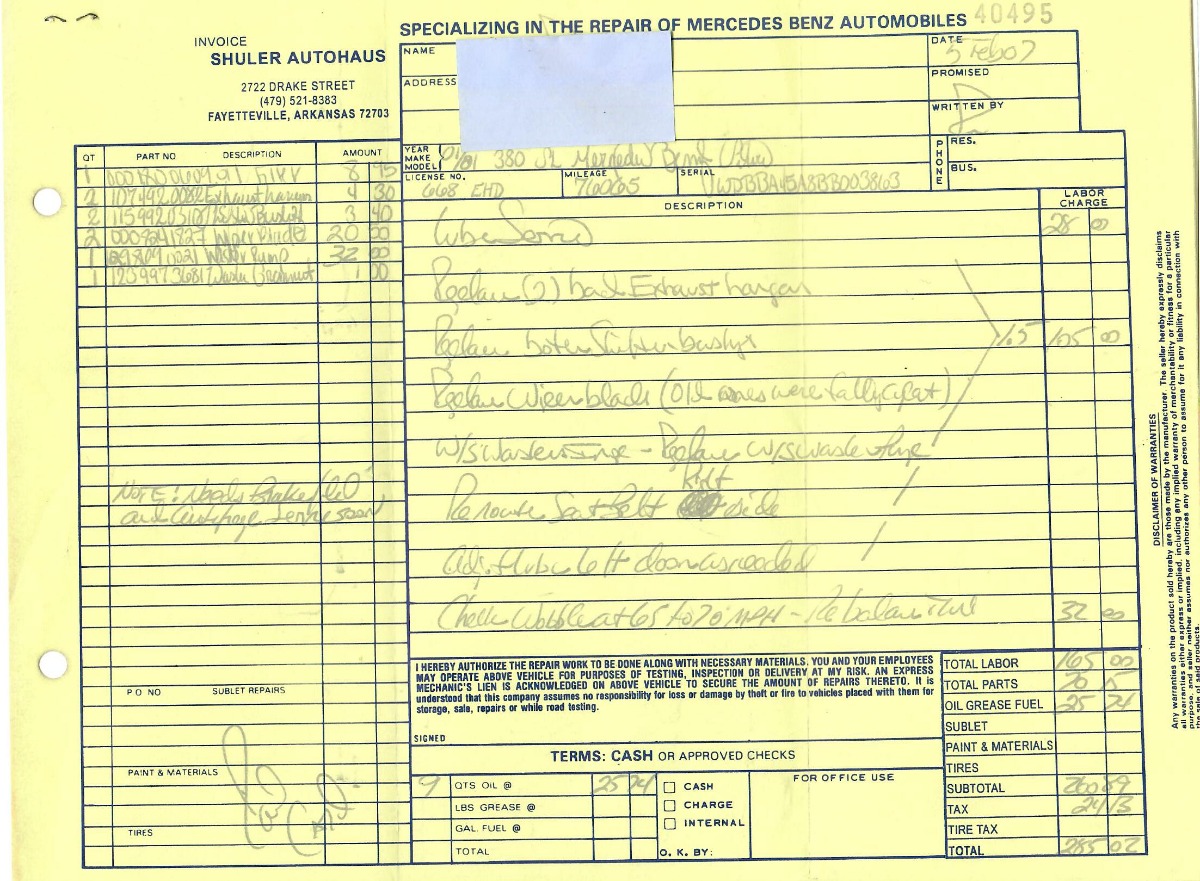 SPECIALIZING IN THE REPAIR OF MERCEDES BENZ AUTOMOBILES 40495
INVOICE
SHULER AUTOHAUS
2722 DRAKE STREET
(479) 521-8383
FAYETTEVILLE, ARKANSAS 72703
NAME
ADDRESS
DATE 5 Feb 07
PROMISED
WRITTEN BY
PHONE
RES.
BUS.
YEAR MAKE MODEL 380 SL Mercedes Benz (Blue)
LICENSE NO. 668 EHD
MILEAGE 76065
SERIAL WDBBA45A8BB003863
QT PART NO DESCRIPTION AMOUNT
1 8 95
2 1074920082 Exhaust hanger 4 30
2 3 40
2 Wiper Blade 20 00
1 Washer Pump 32 00
1 Washer 1 00
DESCRIPTION
LABOR CHARGE
Lube Service 28 00
Replace (2) back Exhaust hangers
Replace Shifter bushings 1.5 105 00
Replace Wiper blades (Old ones were falling apart)
W/S Washer - Replace W/S washer
Reroute Seat Belt Right side
Adj. & lube left door as needed
Check Wobble at 65 to 70 MPH - Rebalance 32 00
NOTE: Needs Brake
and service soon
P O NO SUBLET REPAIRS
PAINT & MATERIALS
TIRES
I HEREBY AUTHORIZE THE REPAIR WORK TO BE DONE ALONG WITH NECESSARY MATERIALS. YOU AND YOUR EMPLOYEES
MAY OPERATE ABOVE VEHICLE FOR PURPOSES OF TESTING, INSPECTION OR DELIVERY AT MY RISK. AN EXPRESS
MECHANIC'S LIEN IS ACKNOWLEDGED ON ABOVE VEHICLE TO SECURE THE AMOUNT OF REPAIRS THERETO. It is
understood that this company assumes no responsibility for loss or damage by theft or fire to vehicles placed with them for
storage, sale, repairs or while road testing.
SIGNED
TERMS: CASH OR APPROVED CHECKS
9 QTS OIL @ 25 74
LBS GREASE @
GAL. FUEL @
TOTAL
CASH
CHARGE
INTERNAL
O. K. BY:
FOR OFFICE USE
TOTAL LABOR 165 00
TOTAL PARTS 70 15
OIL GREASE FUEL 25 74
SUBLET
PAINT & MATERIALS
TIRES
SUBTOTAL 260 89
TAX 24 13
TIRE TAX
TOTAL 285 02
DISCLAIMER OF WARRANTIES
Any warranties on the product sold hereby are those made by the manufacturer. The seller hereby expressly disclaims
all warranties either express or implied, including any implied warranty of merchantability or fitness for a particular
purpose, and seller neither assumes nor authorizes any other person to assume for it any liability in connection with
the sale of said products.